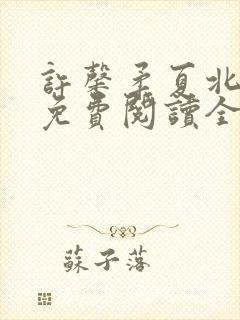 許馨矛夏北
免費閱讀全
蘇子落